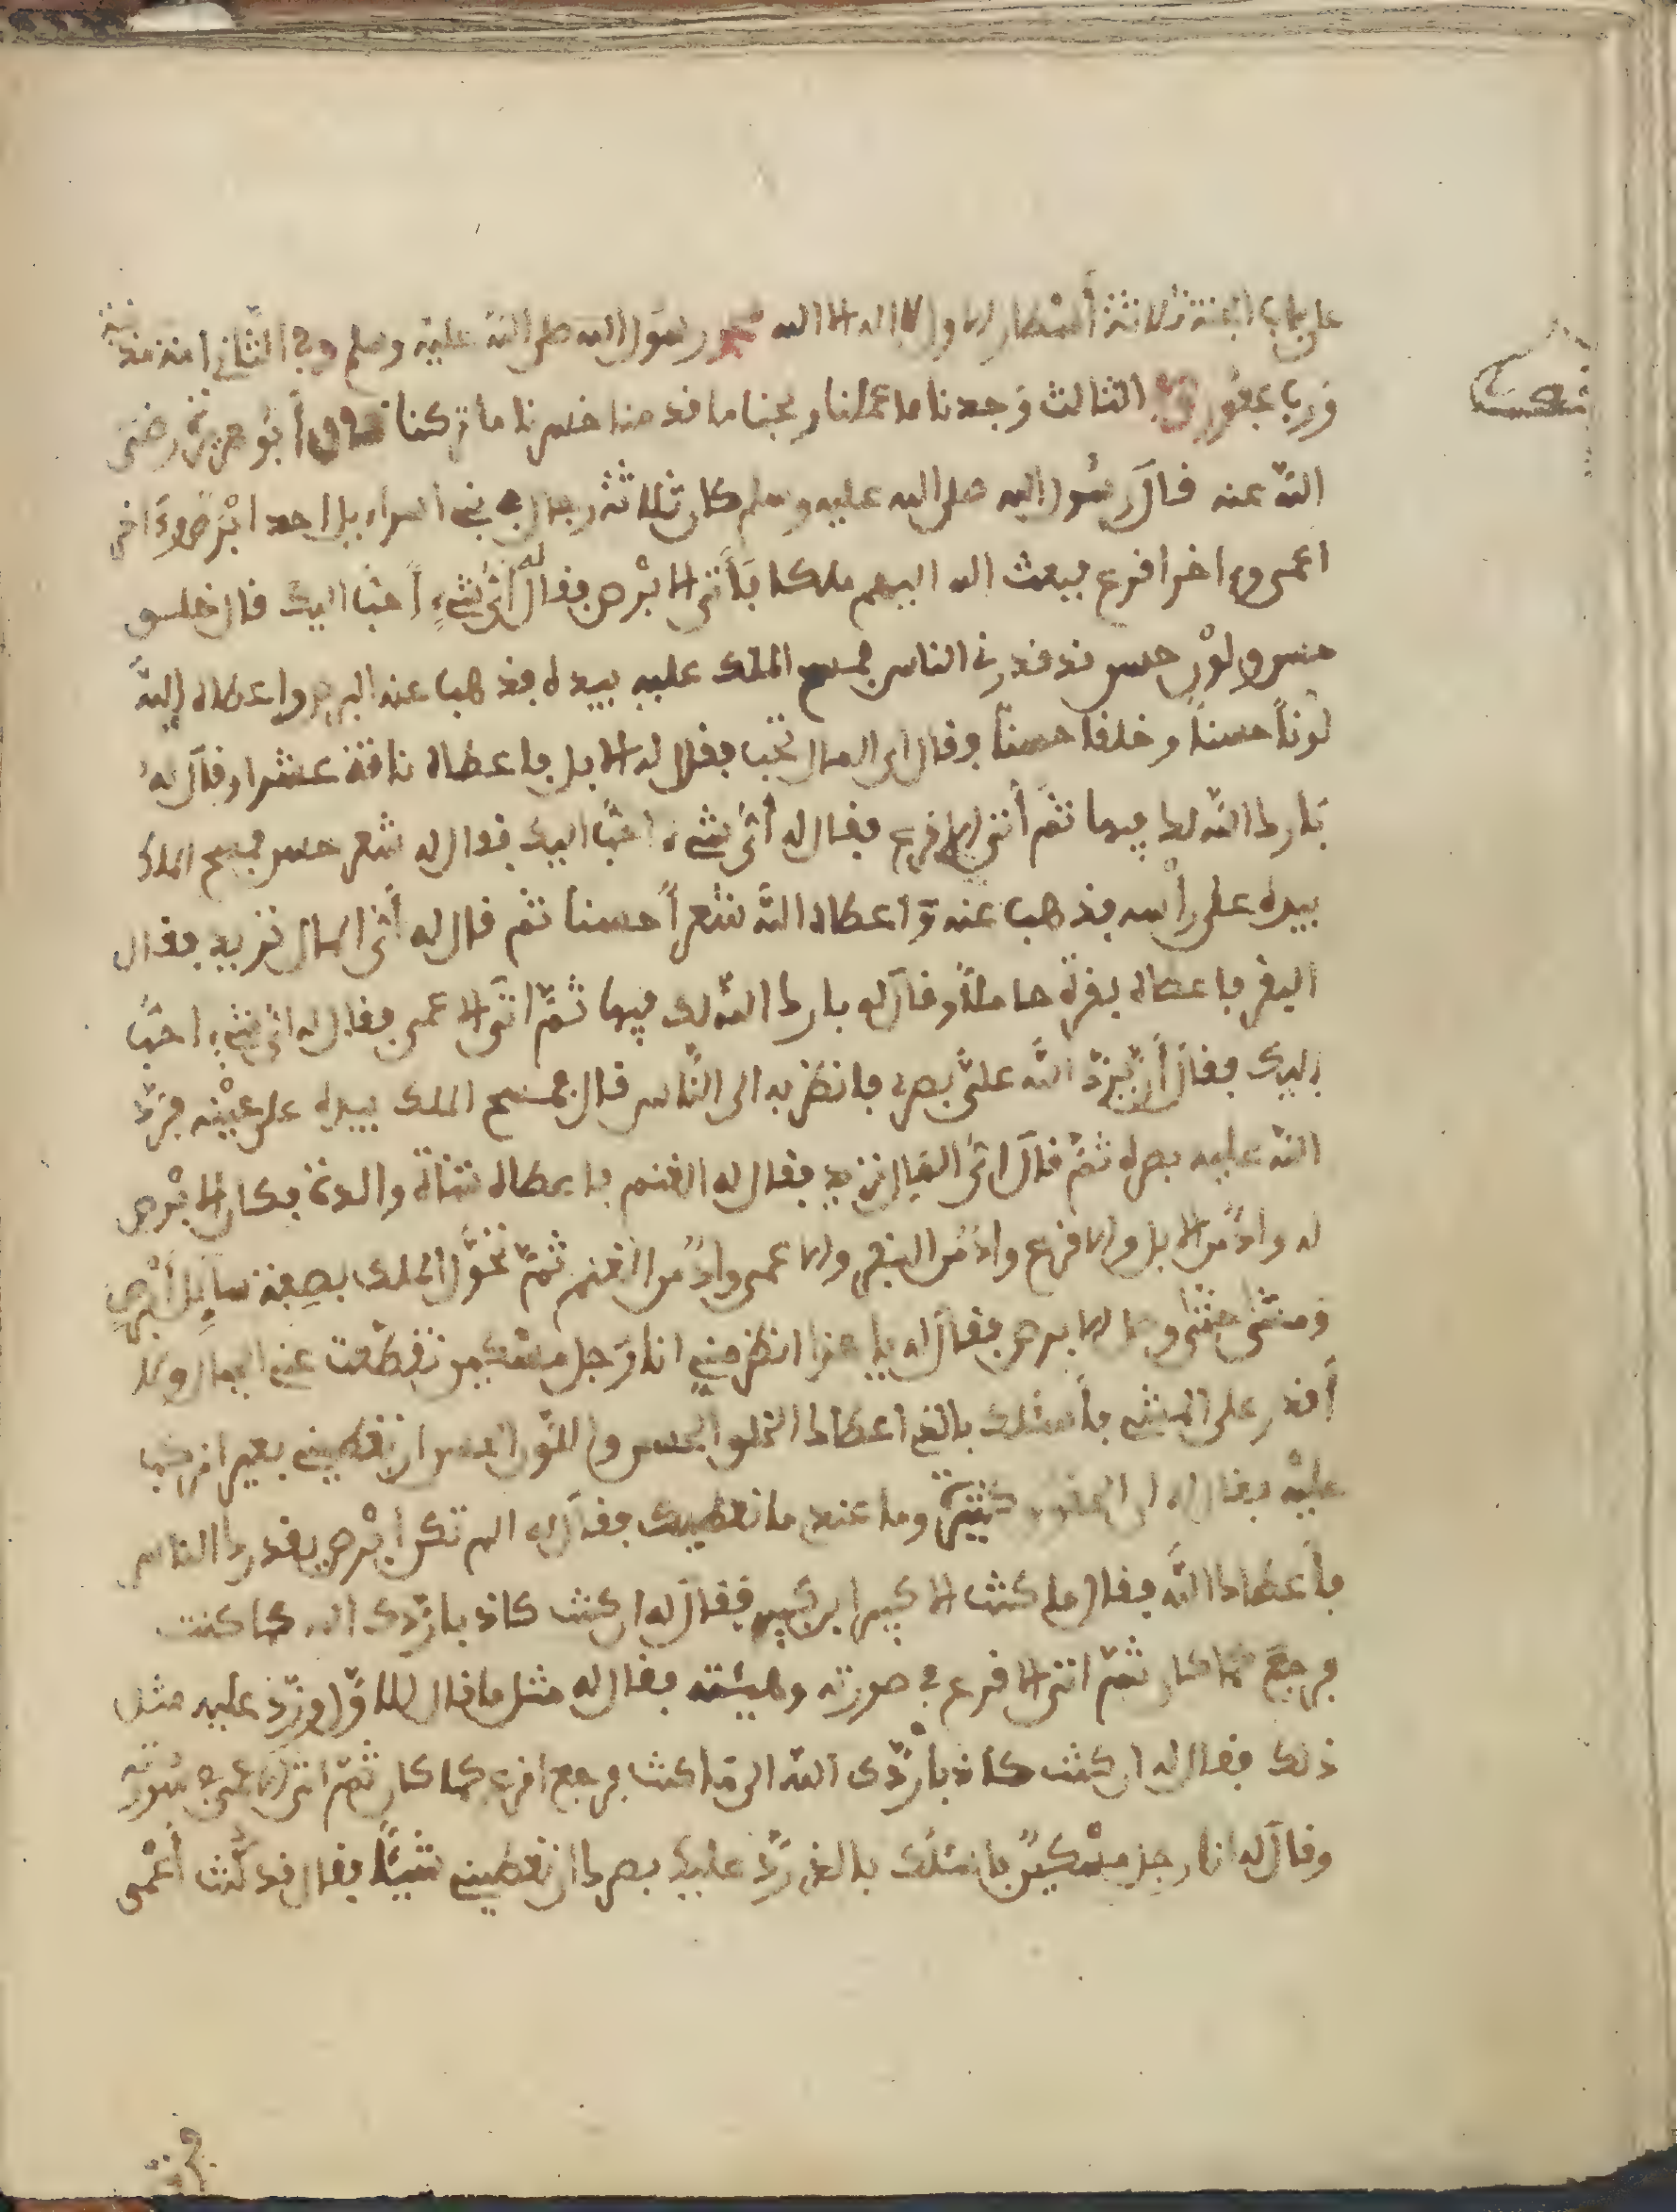 على باب الجنة ثلاثة أسطار الاول لا اله الا الله محمد رسول الله صلى الله عليه وسلم وفي الثاني امة مذنبة
وربا غفور وفي الثالث وجدنا ما عملنا ربحنا ما قدمنا خسرنا ما تركنا قال أبو هريرة رضي
الله عنه قال رسول الله صلى الله عليه وسلم كان ثلاثة رجال في بني اسراءيل احد ابرص وءاخر
اعمى وءاخر اقرع فبعث الله اليهم ملكا فأتى الابرص فقال له أي شيء أحب اليك قال خلق
حسن ولون حسن قد قدرني الناس فمسح الملك عليه بيده فذهب عنه البرص واعطاه الله
لونا حسنا وخلقا حسنا وقال اي المال تحب فقال له الابل فاعطاه ناقة عشرا وقال له
بارك الله لك فيها ثم أتى الاقرع فقال له أي شيء احب اليك فقال له شعر حسن فمسح الملك
بيده على رأسه فذهب عنه واعطاه الله شعرا حسنا ثم قال له أي المال تريد فقال
البقر فاعطاه بقرة حاملا وقال له بارك الله لك فيها ثم اتى الاعمى فقال له اي شيء احب
إليك فقال أن يرد الله علي بصري فانظر به الى الناس قال فمسح الملك بيده على عينه فرد
الله عليه بصره ثم قال اي المال تريد فقال له الغنم فاعطاه شاة والدة فكان الابرص
له واد من الابل والاقرع واد من البقر والاعمى واد من الغنم ثم تحول الملك بصفة سايل أبرص
ومشى حتى وصل الابرص فقال له يا هذا انظر مني انا رجل مسكين تقطعت عني الحبال ولا
أقدر على المشي فأسئلك بالذي اعطاك الخلق الحسن واللون الحسن ان تعطيني بعير انركب
عليه فقال له ان الحقوق كثيرة وما عندي ما نعطيك فقال له الم تكن ابرص يقدرك الناس
فأعطاك الله فقال ما كنت الا كبيرا بن كبير فقال له ان كنت كاذبا ردك الله كما كنت
فرجع كما كان ثم اتى الاقرع في صورته وهيئته فقال له مثل ما قال للاول ورد عليه مثل
ذلك فقال له ان كنت كاذبا ردك الله الى ما كنت فرجع اقرع كما كان ثم اتى الاعمى في صورته
وقال له انا رجل مسكين فاسئلك بالذي رد عليك بصرك ان تعطيني شيئا فقال قد كنت أعمى